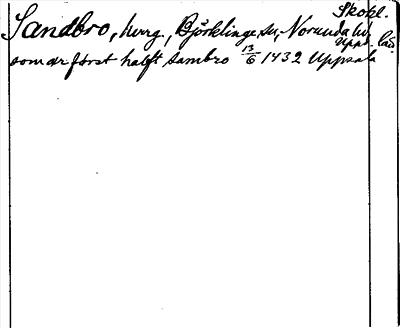 Skokl.
Sandbro, herrg., Björklinge sn, Norunda hd, Upps. län
som är först haft Sambro 13/6 1432 Uppsala